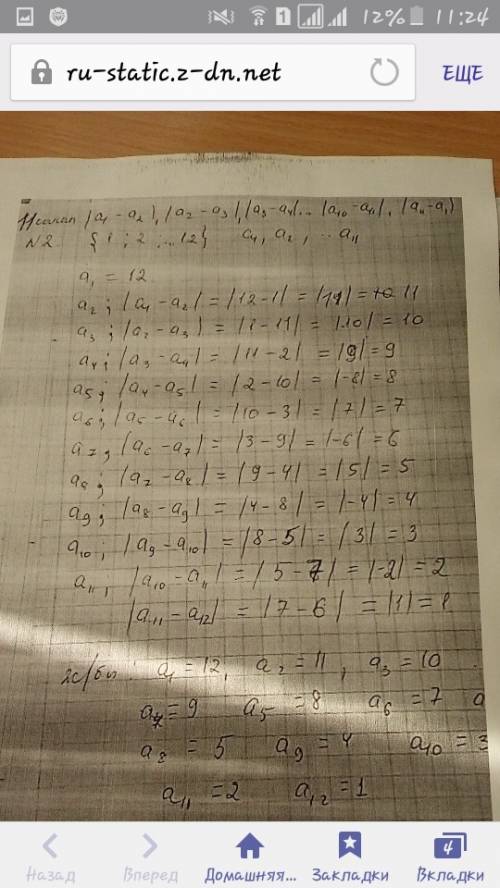 12% 11:24
ru-static.z-dn.net ЕЩЕ
|a₁ - a₂|, |a₂ - a₃|, |a₃ - a₄|... |a₁₀ - a₁₁|, |a₁₁ - a₁|
N2. {1; 2 ...12} a₁, a₂, ... a₁₁
a₁ = 12
a₂; |a₁ - a₂| = |12 - 1| = |11| = 11
a₃; |a₂ - a₃| = |1 - 11| = |10| = 10
a₄; |a₃ - a₄| = |11 - 2| = |9| = 9
a₅; |a₄ - a₅| = |2 - 10| = |-8| = 8
a₆; |a₅ - a₆| = |10 - 3| = |7| = 7
a₇; |a₆ - a₇| = |3 - 9| = |-6| = 6
a₈; |a₇ - a₈| = |9 - 4| = |5| = 5
a₉; |a₈ - a₉| = |4 - 8| = |-4| = 4
a₁₀; |a₉ - a₁₀| = |8 - 5| = |3| = 3
a₁₁, |a₁₀ - a₁₁| = |5 - 7| = |-2| = 2
|a₁₁ - a₁₂| = |7 - 6| = |1| = 1
a₁ = 12, a₂ = 11, a₃ = 10
a₄ = 9 a₅ = 8 a₆ = 7 a
a₈ = 5 a₉ = 4 a₁₀ = 3
a₁₁ = 2 a₁₂ = 1
Назад Вперед Домашняя... Закладки 4 Вкладки